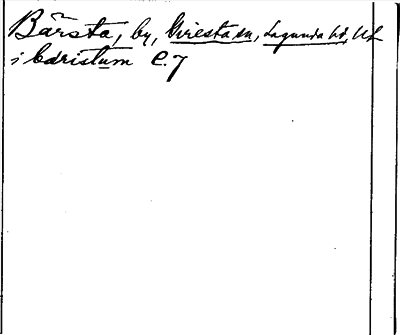 Bärsta, by, Giresta sn, Lagunda hd, Ul
i bæristum C. 7